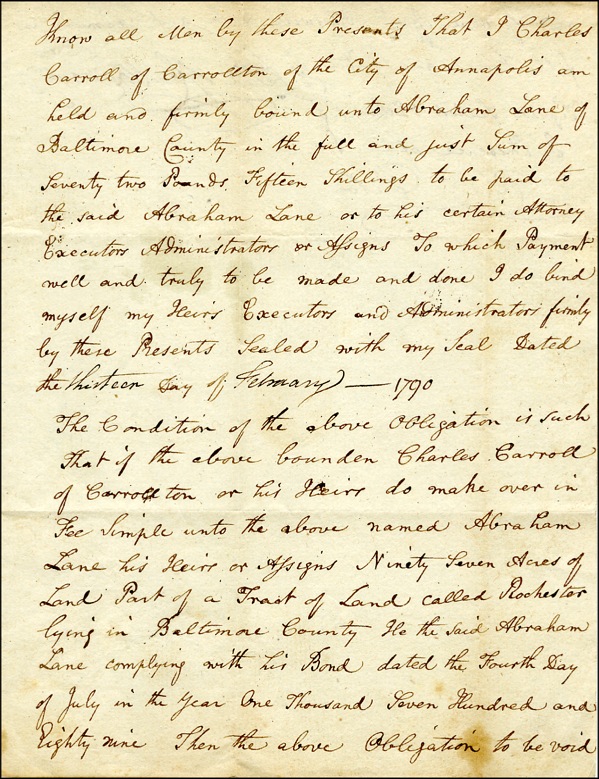 Know all Men by these Presents That I Charles
Carroll of Carrollton of the City of Annapolis am
held and firmly bound unto Abraham Lane of
Baltimore County in the full and just Sum of
Seventy two Pounds Fifteen Shillings to be paid to
the said Abraham Lane or to his certain Attorney
Executors Administrators or Assigns To which Payment
well and truly to be made and done I do bind
myself my Heirs Executors and Administrators firmly
by these Presents Sealed with my Seal Dated
the thirteen Day of February — 1790
The Condition of the above Obligation is such
That if the above bounden Charles Carroll
of Carrollton or his Heirs do make over in
Fee Simple unto the above named Abraham
Lane his Heirs or Assigns Ninety Seven Acres of
Land Part of a Tract of Land called Rochester
lying in Baltimore County He the said Abraham
Lane complying with his Bond dated the Fourth Day
of July in the Year One Thousand Seven Hundred and
Eighty nine Then the above Obligation to be void